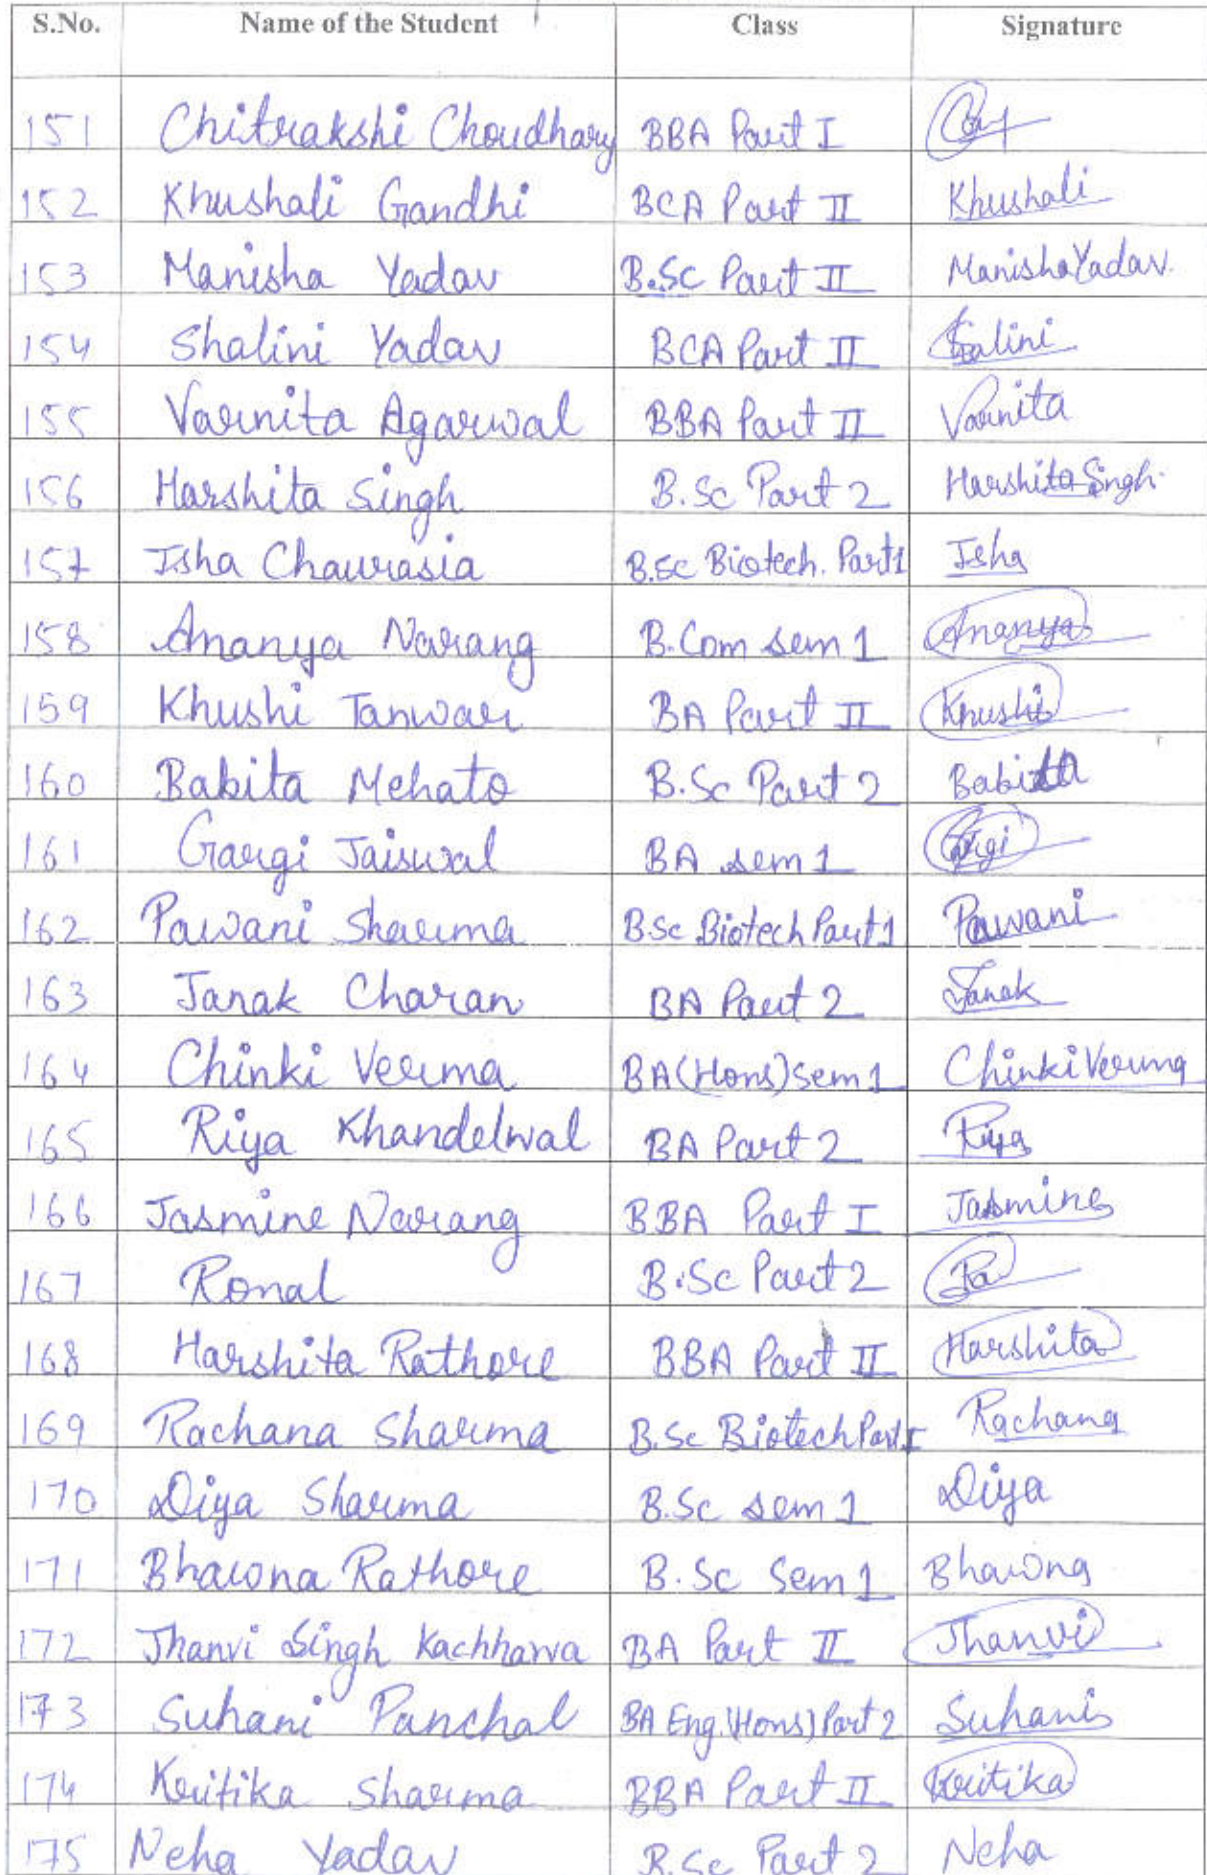 S.No. Name of the Student Class Signature
151 Chitrakshi Choudhary BBA Part I
152 Khushali Gandhi BCA Part II Khushali
153 Manisha Yadav B.Sc Part II Manisha Yadav.
154 Shalini Yadav BCA Part II Shalini
155 Varnita Agarwal BBA Part II Varnita
156 Harshita Singh B.Sc Part 2 Harshita Singh.
157 Isha Chaurasia B.Sc Biotech. Part 1 Isha
158 Ananya Narang B.Com sem 1 Ananya
159 Khushi Tanwar BA Part II Khushi
160 Babita Mehato B.Sc Part 2 Babita
161 Gargi Jaiswal BA sem 1 Gargi
162 Pawani Sharma BSc Biotech Part 1 Pawani
163 Janak Charan BA Part 2 Janak
164 Chinki Verma BA(Hons) sem 1 Chinki Verma
165 Riya Khandelwal BA Part 2 Riya
166 Jasmine Narang BBA Part I Jasmine
167 Ronal B.Sc Part 2
168 Harshita Rathore BBA Part II Harshita
169 Rachana Sharma B.Sc Biotech Part I Rachana
170 Diya Sharma B.Sc sem 1 Diya
171 Bhawna Rathore B.Sc Sem 1 Bhawna
172 Jhanvi Singh Kachhawa BA Part II Jhanvi
173 Suhani Panchal BA Eng.(Hons) Part 2 Suhani
174 Kritika Sharma BBA Part II Kritika
175 Neha Yadav B.Sc Part 2 Neha